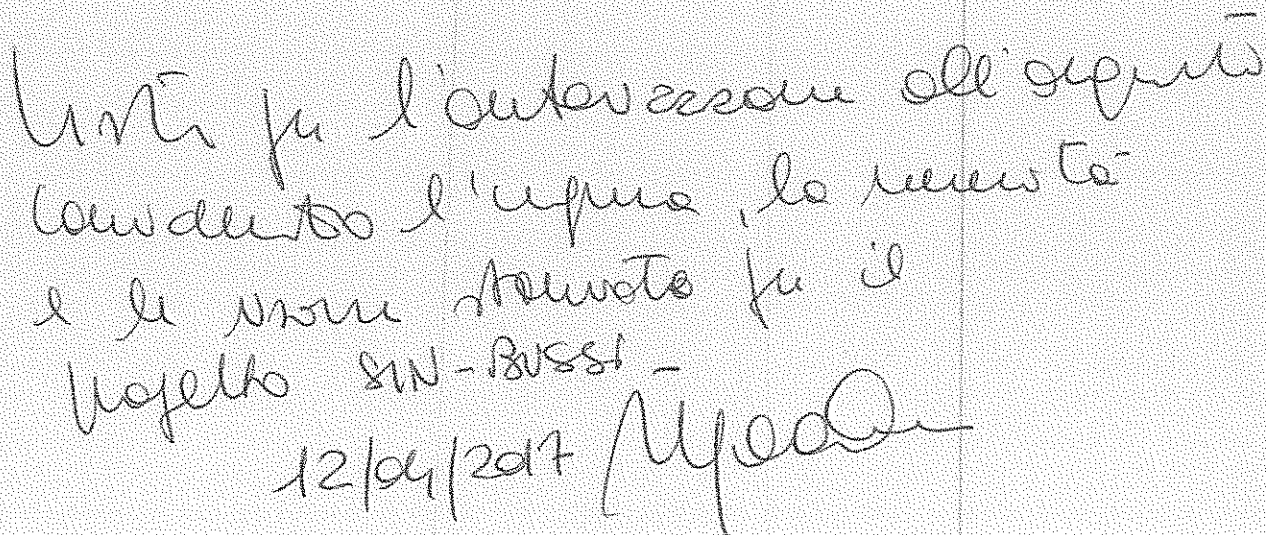 Visto per l'autorizzazione all'acquisto
considerato l'urgenza, la necessità
e le risorse stanziate per il
Progetto SIN-BUSSI -
12/04/2017